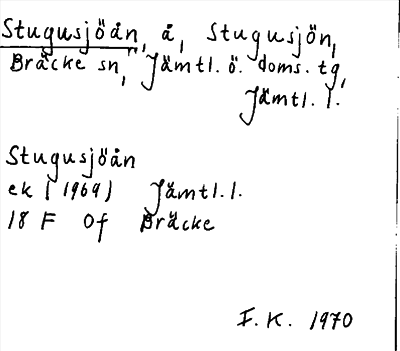 Stugusjöån, å, Stugusjön,
Bräcke sn, Jämtl. ö. doms. tg,
Jämtl. l.
Stugusjöån
ek (1969) Jämtl. l.
18 F 0f Bräcke
F. K. 1970